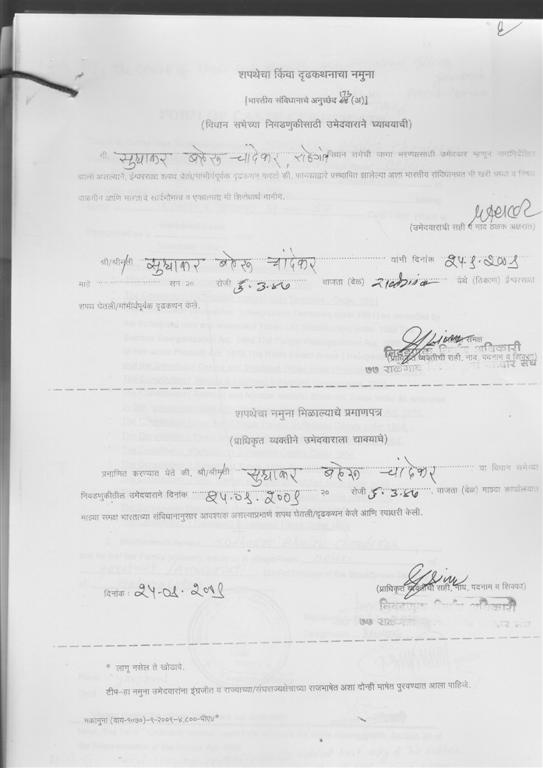 शपथेचा किंवा दृढकथनाचा नमुना
[भारतीय संविधानाचे अनुच्छेद १७३ (अ)]
(विधान सभेच्या निवडणुकीसाठी उमेदवाराने घ्यावयाची)
मी, सुधाकर चांदेकर, विधान सभेची जागा भरण्यासाठी उमेदवार म्हणून नामनिर्देशित
झालो असल्याने, ईश्वरसाक्ष शपथ घेतो/गांभीर्यपूर्वक दृढकथन करतो की, कायद्याद्वारे प्रस्थापित झालेल्या अशा भारतीय संविधानाप्रत मी खरी श्रध्दा व निष्ठा
वाळगीन आणि भारताचे सार्वभौमत्व व एकात्मता मी शिरोधार्य मानीन.
(उमेदवाराची सही व नाव ठळक अक्षरात)
श्री/श्रीमती सुधाकर चांदेकर यांनी दिनांक
माहे सन २० रोजी वाजता (वेळ) येथे (ठिकाण) ईश्वरसाक्ष
शपथ घेतली/गांभीर्यपूर्वक दृढकथन केले.
समक्ष
निवडणूक निर्णय अधिकारी
(प्राधिकृत व्यक्तीची सही, नाव, पदनाम व शिक्का)
७७ राळेगाव
शपथेचा नमुना मिळाल्याचे प्रमाणपत्र
(प्राधिकृत व्यक्तीने उमेदवाराला द्यावयाचे)
प्रमाणित करण्यात येते की, श्री/श्रीमती सुधाकर चांदेकर या विधान सभेच्या
निवडणुकीतील उमेदवाराने दिनांक २५.०९.२००९ २० रोजी वाजता (वेळ) माझ्या कार्यालयात
माझ्या समक्ष भारताच्या संविधानानुसार आवश्यक असल्याप्रमाणे शपथ घेतली/दृढकथन केले आणि स्वाक्षरी केली.
दिनांक : २५.०९.२००९
(प्राधिकृत व्यक्तीची सही, नाव, पदनाम व शिक्का)
निवडणूक निर्णय अधिकारी
७७ राळेगाव
* लागू नसेल ते खोडावे.
टीप-हा नमुना उमेदवारांना इंग्रजीत व राज्याच्या/संघराज्यक्षेत्राच्या राजभाषेत अशा दोन्ही भाषेत पुरवण्यात आला पाहिजे.